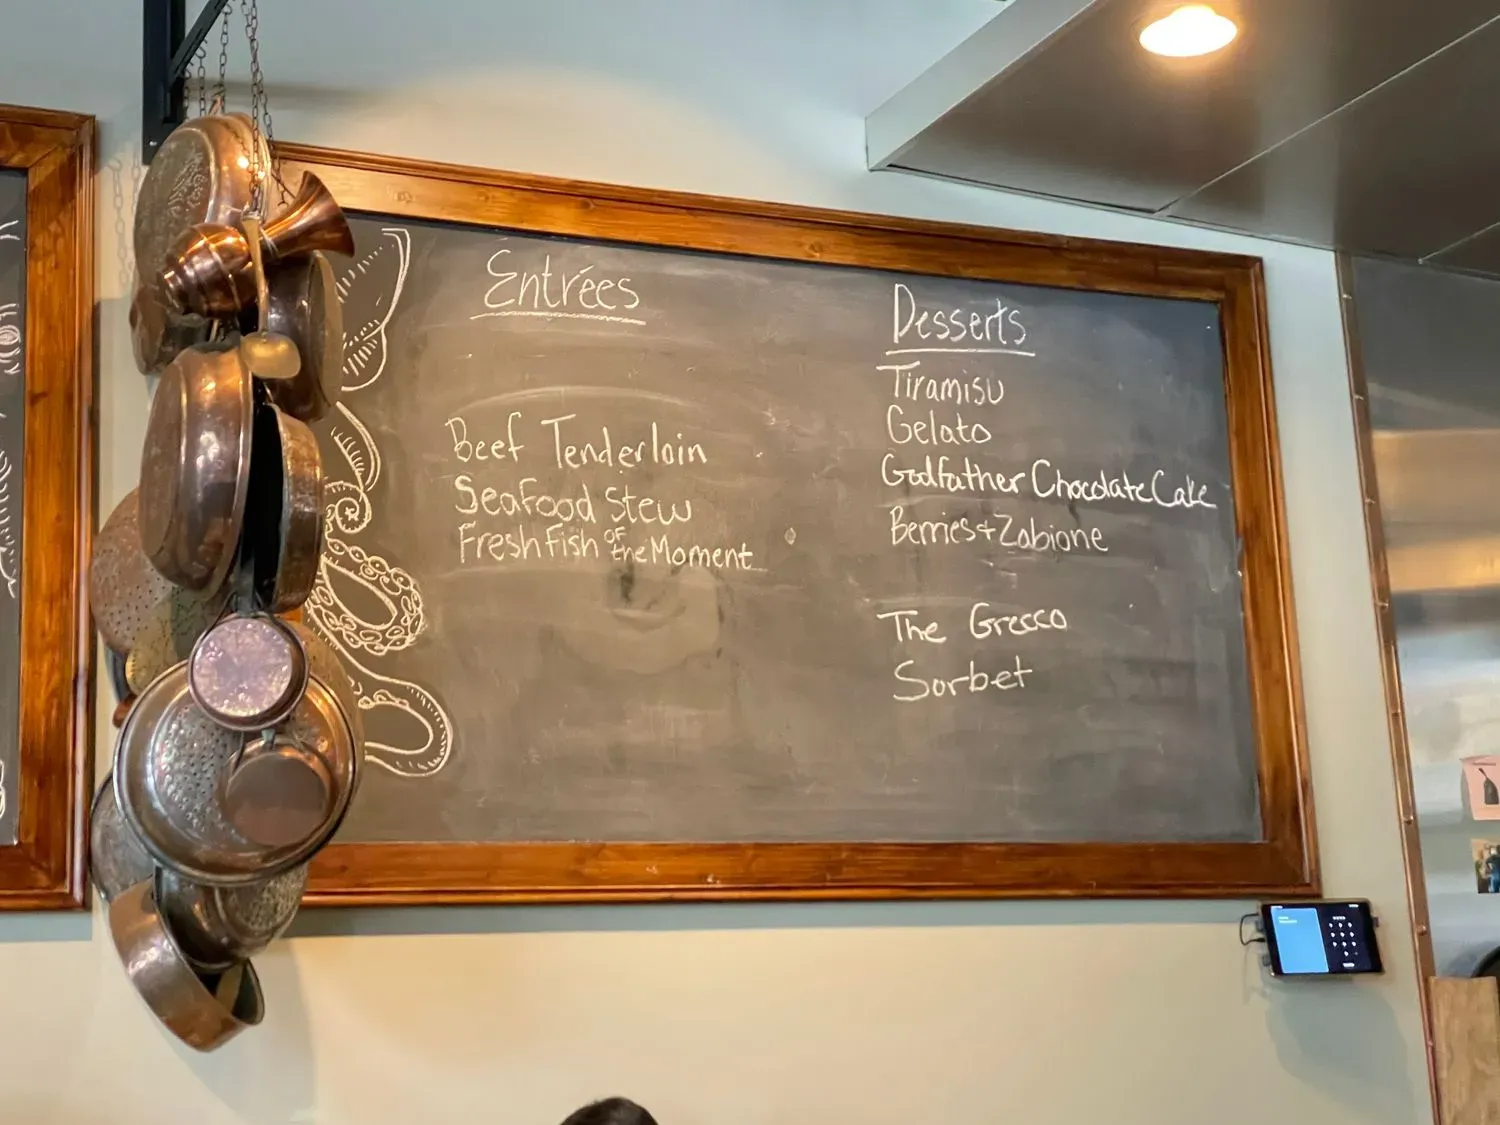 Entrées
Beef Tenderloin
Seafood Stew
Fresh Fish of the Moment
Desserts
Tiramisu
Gelato
Godfather Chocolate Cake
Berries + Zabione
The Grecco
Sorbet